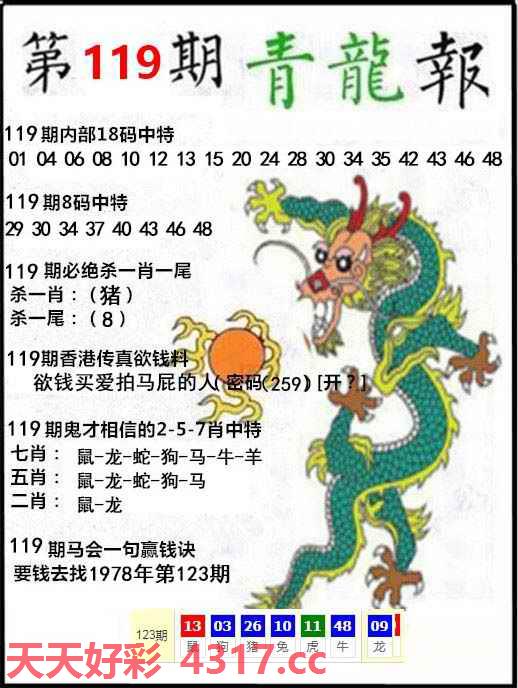 第119期 青龍報
119期内部18码中特
01 04 06 08 10 12 13 15 20 24 28 30 34 35 42 43 46 48
119期8码中特
29 30 34 37 40 43 46 48
119期必绝杀一肖一尾
杀一肖：（猪）
杀一尾：（8）
119期香港传真欲钱料
欲钱买爱拍马屁的人( 密码(259) [开？]
119期鬼才相信的2-5-7肖中特
七肖： 鼠-龙-蛇-狗-马-牛-羊
五肖： 鼠-龙-蛇-狗-马
二肖： 鼠-龙
119期马会一句赢钱诀
要钱去找1978年第123期
123期 13 03 26 10 11 48 09
鼠 狗 猪 兔 虎 牛 龙
天天好彩 4317.cc